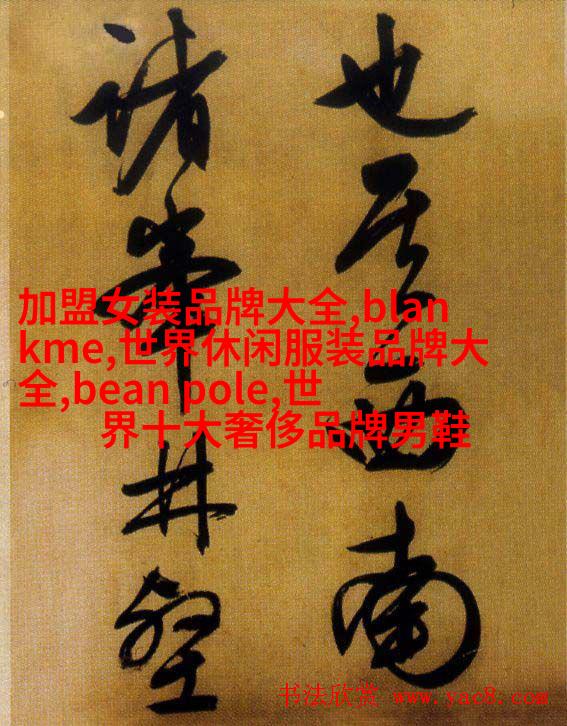 也其西南
諸峯林壑
加盟女装品牌大全,blan
kme,世界休闲服装品牌大
全,bean pole,世
界十大奢侈品牌男鞋
书法欣赏 www.yac8.com